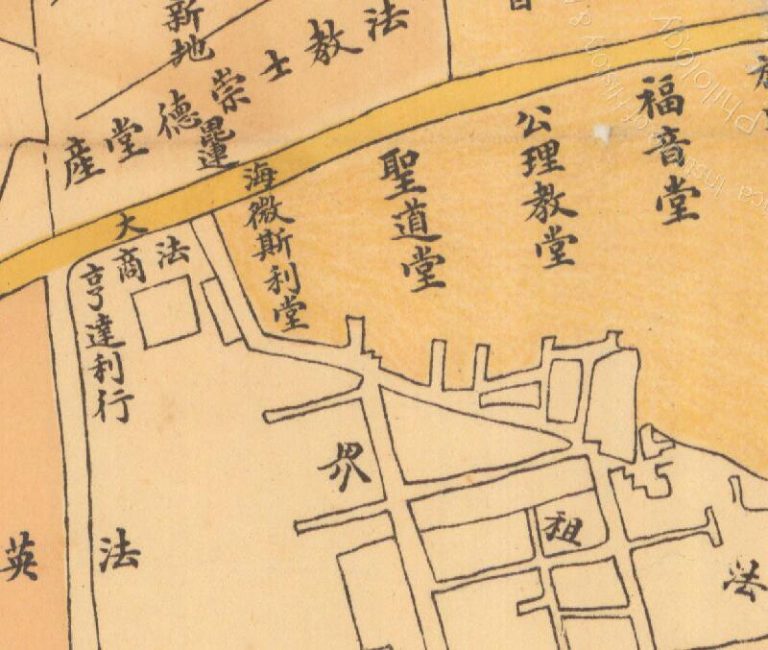 新地
法
教
士
崇
德
堂
產
毘連
福音堂
公理教堂
聖道堂
海微斯利堂
大
商
法
亨達利行
界
租
英
法
法
Philology